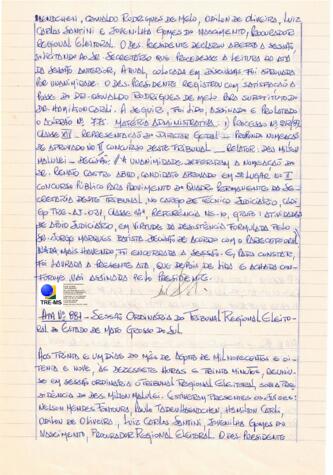 MENDCHEN, OSWALDO RODRIGUES DE MELO, ODILON DE OLIVEIRA, LUIZ
CARLOS SANTINI E JOVENILHA GOMES DO NASCIMENTO, PROCURADOR
REGIONAL ELEITORAL. O DES. PRESIDENTE DECLAROU ABERTA A SESSÃO,
SOLICITANDO AO SR. SECRETÁRIO QUE PROCEDESSE A LEITURA DA ATA
DA SESSÃO ANTERIOR, A QUAL, COLOCADA EM DISCUSSÃO FOI APROVADA
POR UNANIMIDADE. O DES. PRESIDENTE REGISTROU COM SATISFAÇÃO A
POSSE DO DR. OSWALDO RODRIGUES DE MELO PARA SUBSTITUTO DO
DR. HAMILTON CARLI. A SEGUIR, FOI LIDO, ASSINADO E PUBLICADO
O ACÓRDÃO Nº 775. MATÉRIA ADMINISTRATIVA: 1) PROCESSO Nº
CLASSE XIV - REPRESENTAÇÃO DO DIRETOR GERAL - PROPONDO NOMEAÇÃO
DE APROVADO NO II CONCURSO DESTE TRIBUNAL - RELATOR: DES. MILTON
MALULEI - DECISÃO: "À UNANIMIDADE DEFERIRAM A NOMEAÇÃO DO
SR. RENATO CASTRO ABDO, CANDIDATO APROVADO EM LUGAR NO II
CONCURSO PÚBLICO PARA PROVIMENTO DO QUADRO PERMANENTE DA SE-
CRETARIA DESTE TRIBUNAL, NO CARGO DE TÉCNICO JUDICIÁRIO, CÓDI-
GO TRE-AJ-021, CLASSE "A", REFERÊNCIA NS-10, GRUPO ATIVIDADES
DE APOIO JUDICIÁRIO, EM VIRTUDE DA DESISTÊNCIA FORMULADA PELO
SR. JORGE MARQUES BATISTA. DECISÃO DE ACORDO COM O PARECER ORAL.
NADA MAIS HAVENDO, FOI ENCERRADA A SESSÃO. E, PARA CONSTAR,
FOI LAVRADA A PRESENTE ATA, QUE DEPOIS DE LIDA E ACHADA CON-
FORME VAI ASSINADA PELO PRESIDENTE.
TRE-MS
ATA Nº 881 - SESSÃO ORDINÁRIA DO TRIBUNAL REGIONAL ELEITO-
DO ESTADO DE MATO GROSSO DO SUL
AOS TRINTA E UM DIAS DO MÊS DE AGOSTO DE MIL NOVECENTOS E OI-
TENTA E NOVE, ÀS DEZESSETE HORAS E TRINTA MINUTOS, REUNIU-
SE EM SESSÃO ORDINÁRIA O TRIBUNAL REGIONAL ELEITORAL, SOB A PRE-
SIDÊNCIA DO DES. MILTON MALULEI. ESTIVERAM PRESENTES OS JUÍZES:
NELSON MENDES FONTOURA, PAULO TADEU HAENDCHEN, HAMILTON CARLI,
ODILON DE OLIVEIRA, LUIZ CARLOS SANTINI, JOVENILHA GOMES DO
NASCIMENTO, PROCURADOR REGIONAL ELEITORAL. O DES. PRESIDENTE